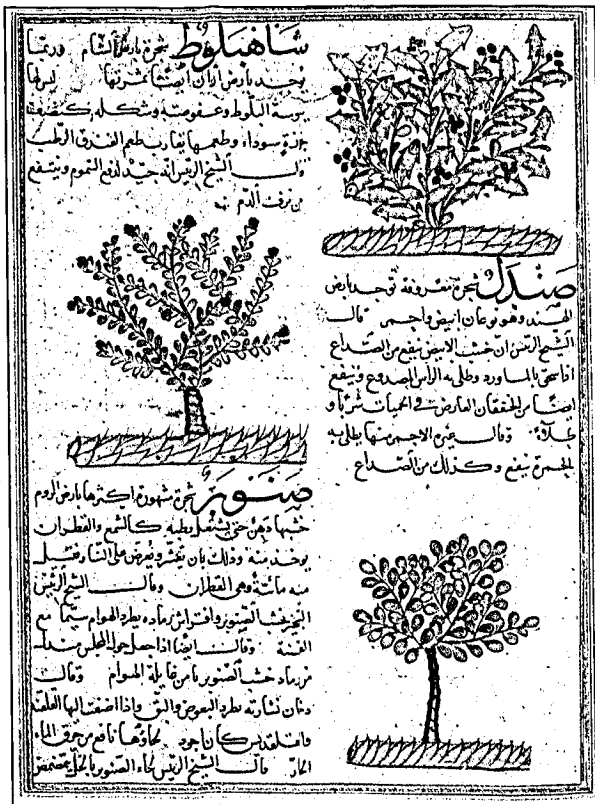 شاهبلوط شجرة بارض الشام وربما
يوجد بارض اران ايضا ثمرتها ليس لها
يبوسة البلوط وعفوصته وشكله كنصف
جوزة سوداء وطعمها يقارب طعم الفندق الرطب
قال الشيخ الرئيس انه جيد لدفع السموم وينفع
من نزف الدم
صندل شجرة معروفة توجد بارض
الهند وهو نوعان ابيض واحمر قال
الشيخ الرئيس ان خشب الابيض ينفع من الصداع
اذا سحق بالماورد وطلي به الرأس المصدوع وينفع
ايضا من الخفقان العارض في الحميات شربا و
طلاء وقال غيره الاحمر منها يطلى به
الجمرة ينفع وكذلك من الصداع
صنوبر شجرة مشهورة اكثرها بارض الروم
خشبها دهن حتى يشتعل رطبه كالشمع والقطران
يوخذ منه وذلك بان تقشر وتعرض على النار فتسيل
منه مائية وهي القطران وقال الشيخ الرئيس
التبخر بخشب الصنوبر وافتراش رماده يطرد الهوام سيما مع
القنة وقال ايضا اذا جعل حول المجلس مندل
من رماد خشب الصنوبر يامن غايلة الهوام وقال
دخان نشارته يطرد البعوض والبق واذا اضفت اليها القلقند
والقلقديس كان اجود لحاؤها نافع من حرق الماء
الحار قال الشيخ الرئيس لحاء الصنوبر بالخل يتمضمض